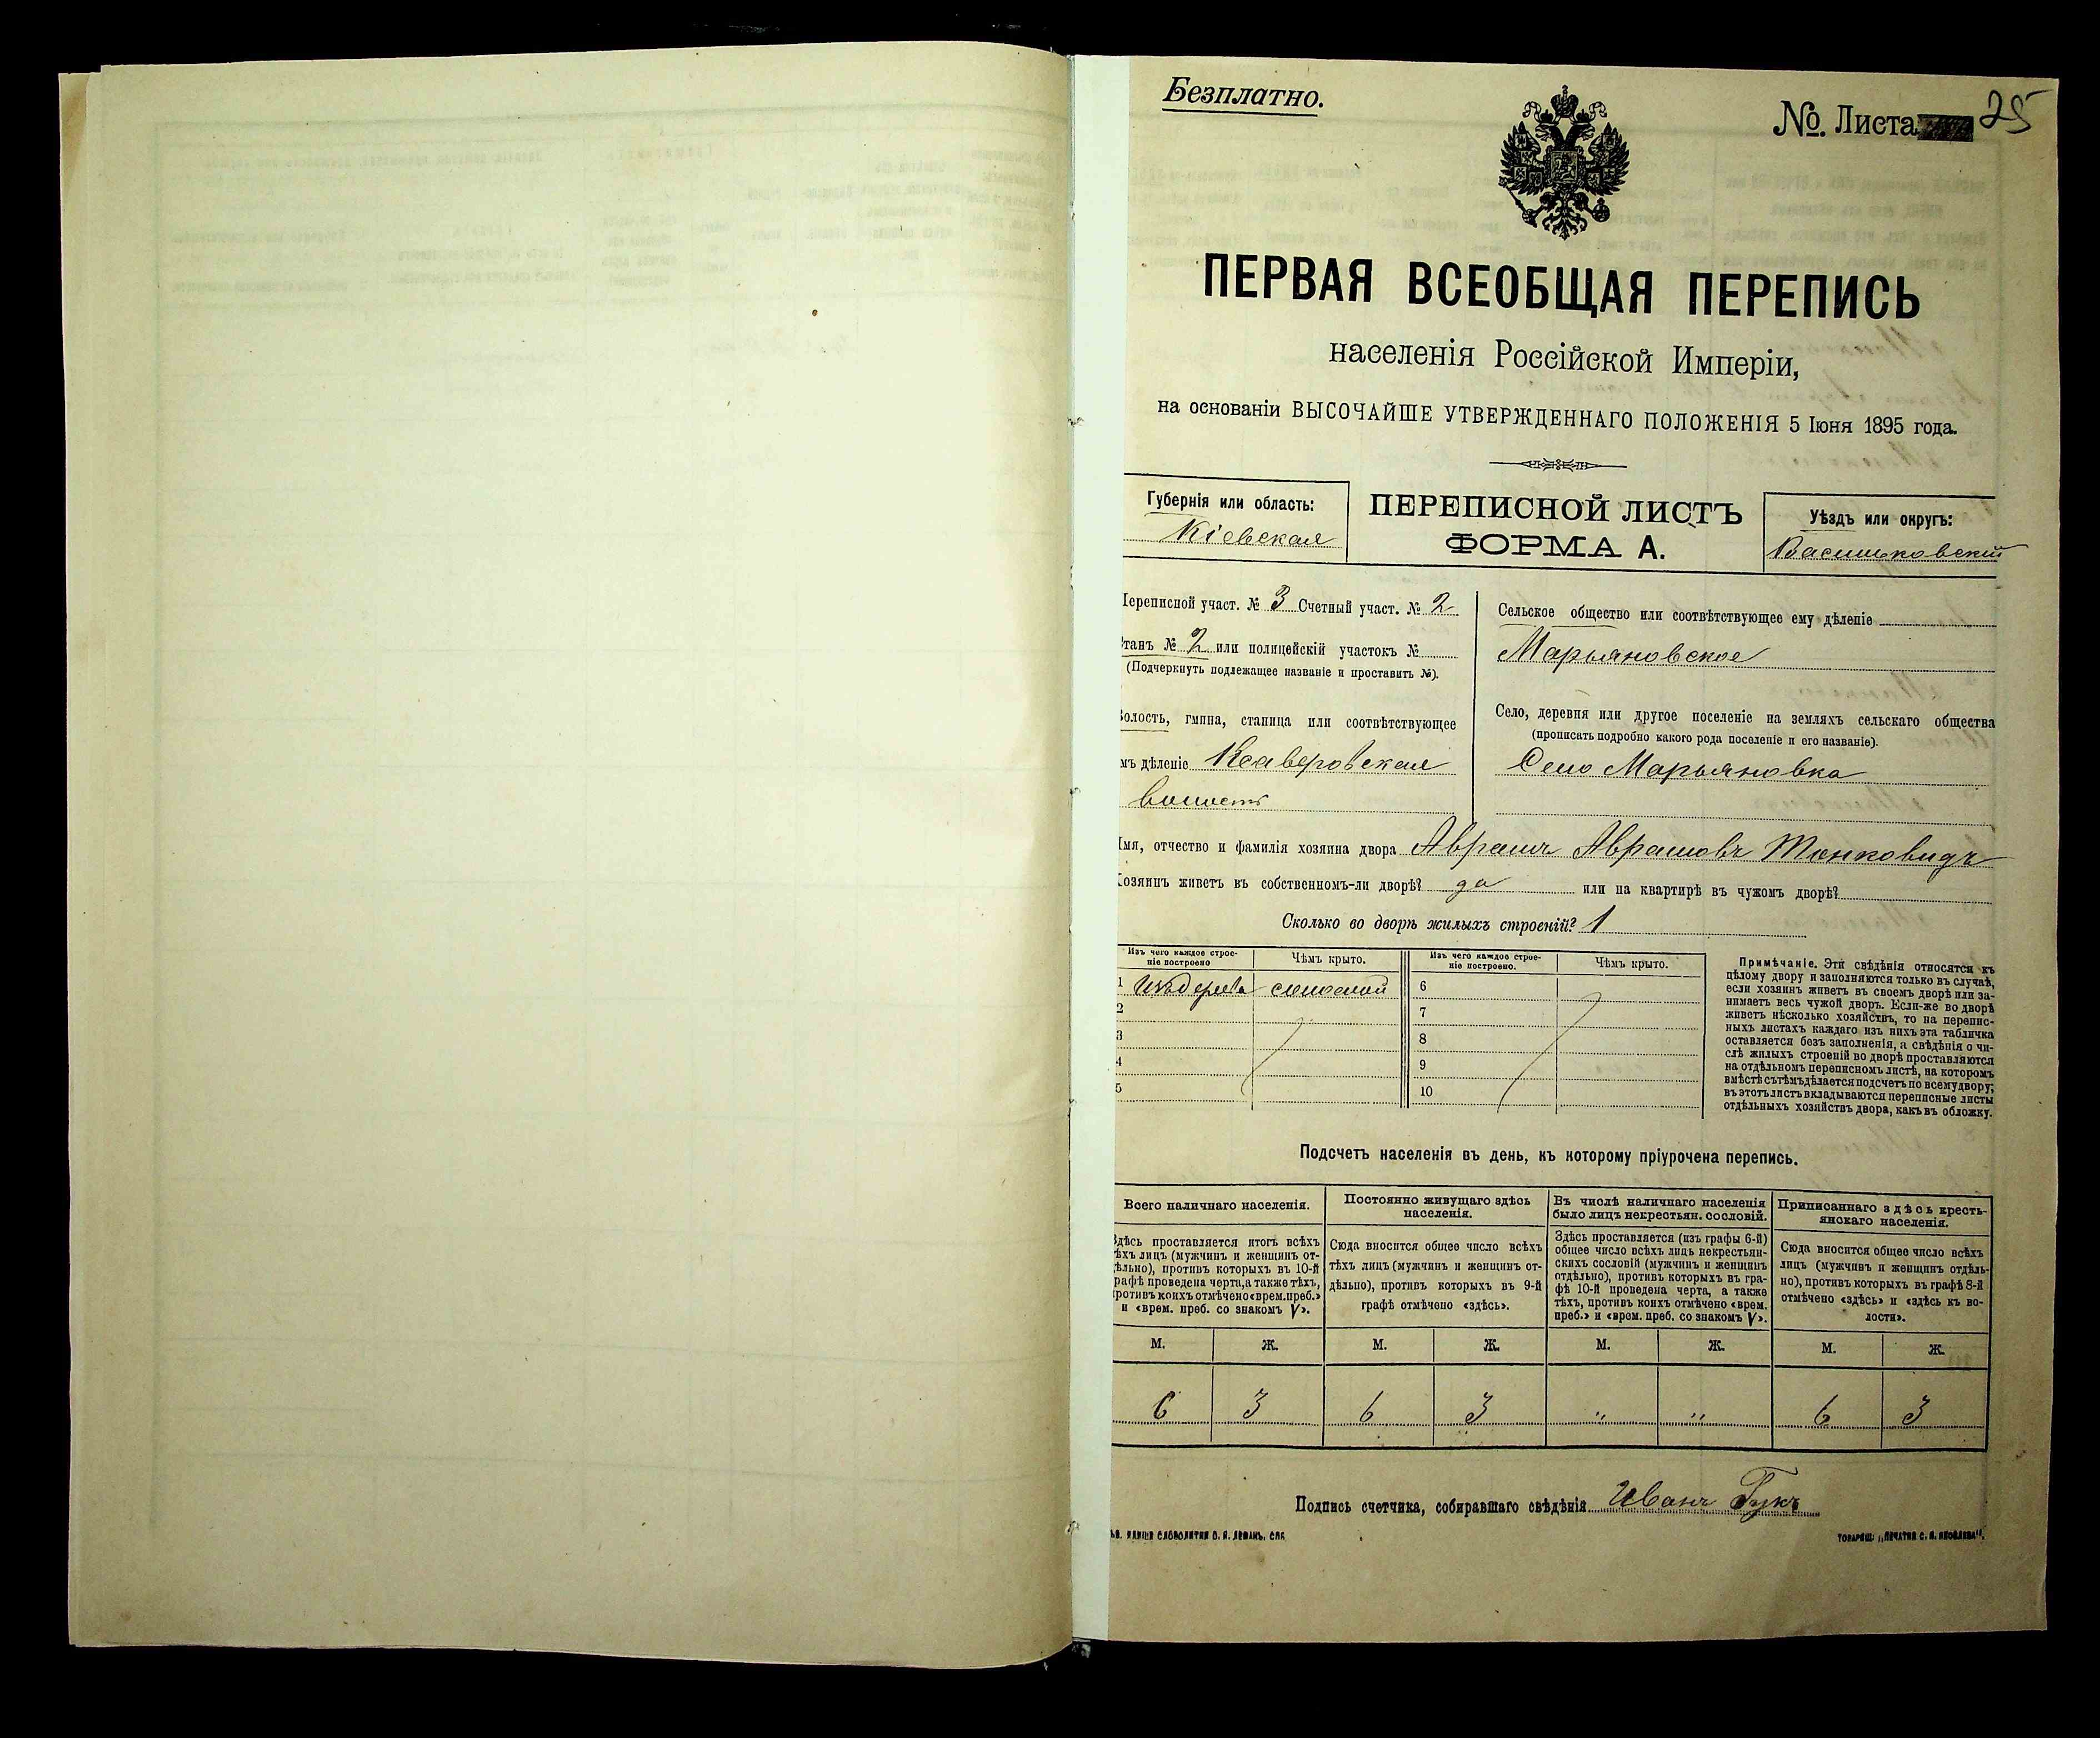 Безплатно.
№. Листа 25
ПЕРВАЯ ВСЕОБЩАЯ ПЕРЕПИСЬ
населенія Россійской Имперіи,
на основаніи ВЫСОЧАЙШЕ УТВЕРЖДЕННАГО ПОЛОЖЕНІЯ 5 Іюня 1895 года.
Губернія или область:
Кіевская
ПЕРЕПИСНОЙ ЛИСТЪ
ФОРМА А.
Уѣздъ или округъ:
Васильковскій
Переписной участ. № 3 Счетный участ. № 2
Станъ № 2 или полицейскій участокъ №
(Подчеркнуть подлежащее названіе и проставить №).
Волость, гмина, станица или соотвѣтствующее
имъ дѣленіе Ксаверовская
волость
Сельское общество или соотвѣтствующее ему дѣленіе
Марьяновское
Село, деревня или другое поселеніе на земляхъ сельскаго общества
(прописать подробно какого рода поселеніе и его названіе).
Село Марьяновка
Имя, отчество и фамилія хозяина двора Аврамъ Аврамовъ
Хозяинъ живетъ въ собственномъ-ли дворѣ? да или на квартирѣ въ чужомъ дворѣ?
Сколько во дворѣ жилыхъ строеній? 1
Изъ чего каждое строе-
ніе построено
Чѣмъ крыто.
Изъ чего каждое строе-
ніе построено.
Чѣмъ крыто.
1 Изъ дерева соломой
2
3
4
5
6
7
8
9
10
Примѣчаніе. Эти свѣдѣнія относятся къ
цѣлому двору и заполняются только въ случаѣ,
если хозяинъ живетъ въ своемъ дворѣ или за-
нимаетъ весь чужой дворъ. Если-же во дворѣ
живетъ нѣсколько хозяйствъ, то на перепис-
ныхъ листахъ каждаго изъ нихъ эта табличка
оставляется безъ заполненія, а свѣдѣнія о чи-
слѣ жилыхъ строеній во дворѣ проставляются
на отдѣльномъ переписномъ листѣ, на которомъ
вмѣстѣ съ тѣмъ дѣлается подсчетъ по всему двору;
въ этотъ листъ вкладываются переписные листы
отдѣльныхъ хозяйствъ двора, какъ въ обложку.
Подсчетъ населенія въ день, къ которому пріурочена перепись.
Всего наличнаго населенія.
Здѣсь проставляется итогъ всѣхъ
тѣхъ лицъ (мужчинъ и женщинъ от-
дѣльно), противъ которыхъ въ 10-й
графѣ проведена черта, а также тѣхъ,
противъ коихъ отмѣчено «врем. преб.»
и «врем. преб. со знакомъ V».
Постоянно живущаго здѣсь
населенія.
Сюда вносится общее число всѣхъ
тѣхъ лицъ (мужчинъ и женщинъ от-
дѣльно), противъ которыхъ въ 9-й
графѣ отмѣчено «здѣсь».
Въ числѣ наличнаго населенія
было лицъ некрестьян. сословій.
Здѣсь проставляется (изъ графы 6-й)
общее число всѣхъ лицъ некрестьян-
скихъ сословій (мужчинъ и женщинъ
отдѣльно), противъ которыхъ въ гра-
фѣ 10-й проведена черта, а также
тѣхъ, противъ коихъ отмѣчено «врем.
преб.» и «врем. преб. со знакомъ V».
Приписаннаго здѣсь кресть-
янскаго населенія.
Сюда вносится общее число всѣхъ
лицъ (мужчинъ и женщинъ отдѣль-
но), противъ которыхъ въ графѣ 8-й
отмѣчено «здѣсь» и «здѣсь къ во-
лости».
М. Ж. М. Ж. М. Ж. М. Ж.
6 3 6 3 " " 6 3
Подпись счетчика, собиравшаго свѣдѣнія Иванъ Гукъ
СЛОВОЛИТНИ О. И. ЛЕМАНЪ, СПБ.
ТОВАРИЩ. „ПЕЧАТНЯ С. П. ЯКОВЛЕВА".